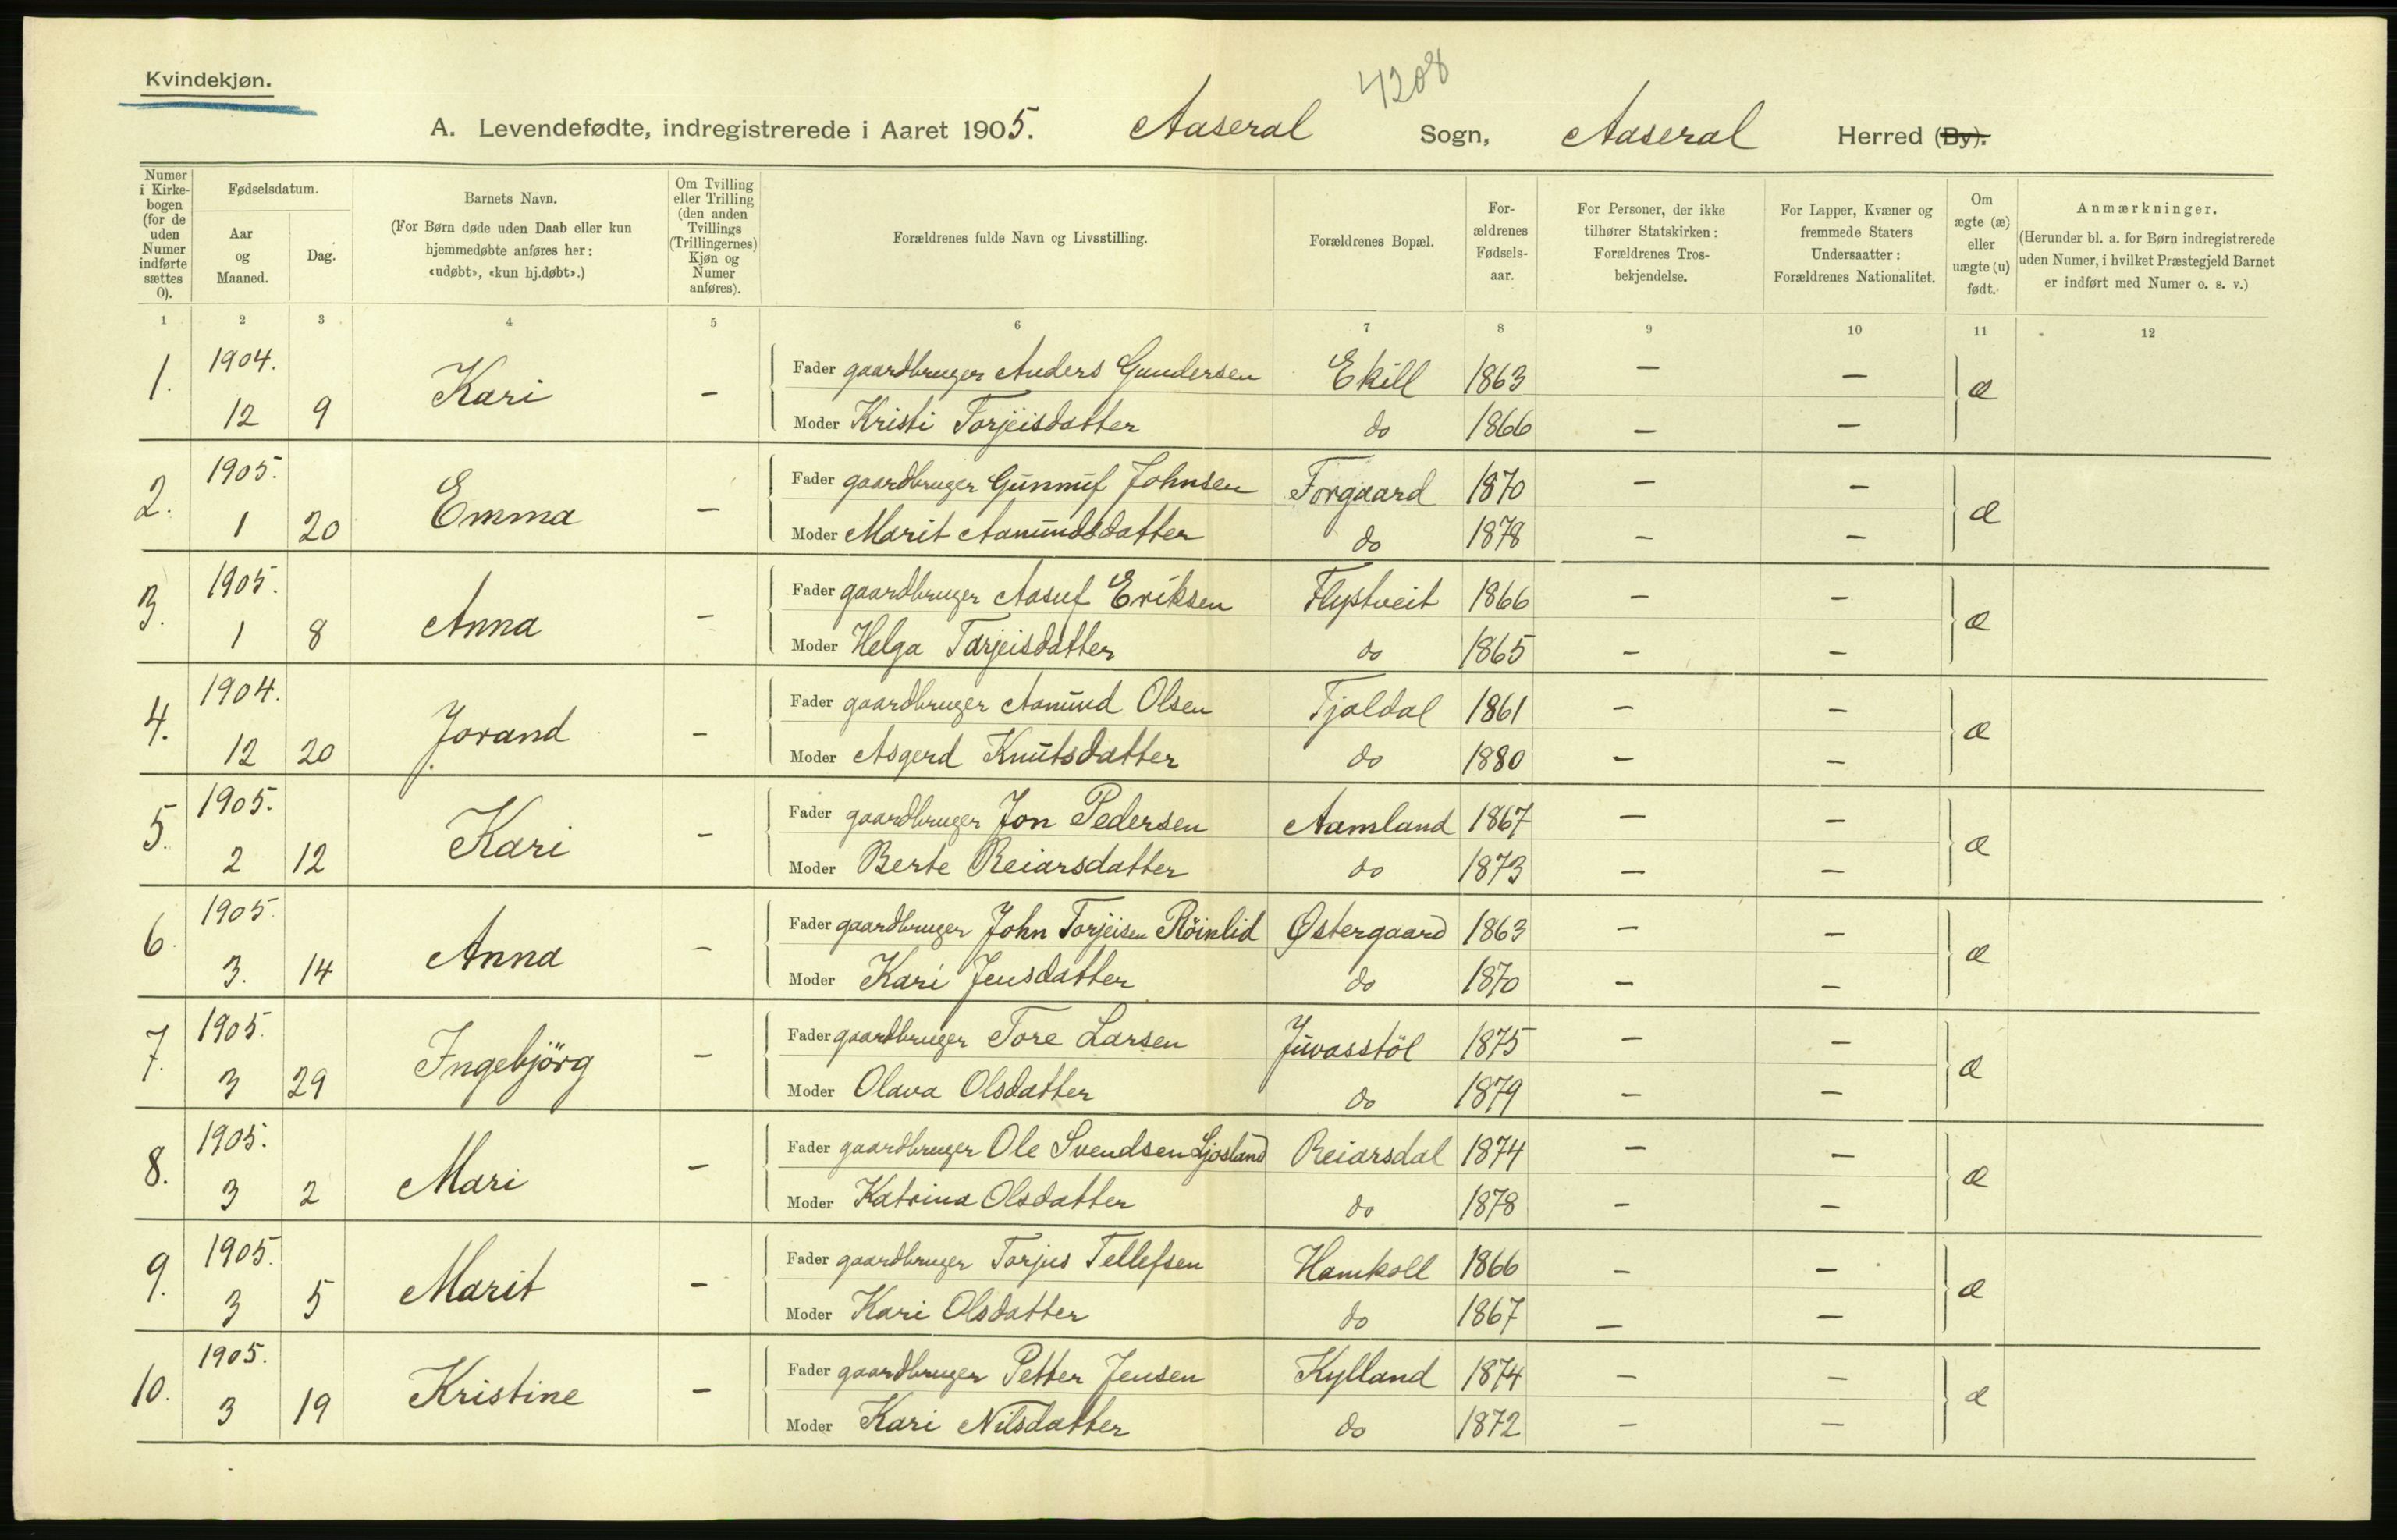 Kvindekjøn.
4208
A. Levendefødte, indregistrerede i Aaret 1905. Aaseral Sogn, Aaseral Herred (By).
Numer i Kirke-bogen (for de uden Numer indførte sættes 0). Fødselsdatum. Aar og Maaned. Dag. Barnets Navn. (For Børn døde uden Daab eller kun hjemmedøbte anføres her: «udøbt», «kun hj.døbt».) Om Tvilling eller Trilling (den anden Tvillings (Trillingernes) Kjøn og Numer anføres). Forældrenes fulde Navn og Livsstilling. Forældrenes Bopæl. For-ældrenes Fødsels-aar. For Personer, der ikke tilhører Statskirken: Forældrenes Tros-bekjendelse. For Lapper, Kvæner og fremmede Staters Undersaatter: Forældrenes Nationalitet. Om ægte (æ) eller uægte (u) født. Anmærkninger. (Herunder bl. a. for Børn indregistrerede uden Numer, i hvilket Præstegjeld Barnet er indført med Numer o. s. v.)
1 2 3 4 5 6 7 8 9 10 11 12
1. 1904. Kari – Fader gaardbruger Anders Gundersen Ekill 1863 – – æ
12 9 Moder Kristi Torjeisdatter do 1866 – –
2. 1905. Emma – Fader gaardbruger Gunnuf Johnsen Forgaard 1870 – – æ
1 20 Moder Marit Aamundsdatter do 1878 – –
3. 1905. Anna – Fader gaardbruger Aasuf Eriksen Flystveit 1866 – – æ
1 8 Moder Helga Tarjeisdatter do 1865 – –
4. 1904. Jorand – Fader gaardbruger Aamund Olsen Tjaldal 1861 – – æ
12 20 Moder Asgerd Knutsdatter do 1880 – –
5. 1905. Kari – Fader gaardbruger Jon Pedersen Aamland 1867 – – æ
2 12 Moder Berte Reiarsdatter do 1873 – –
6. 1905. Anna – Fader gaardbruger John Torjeisen Röinlid Østergaard 1863 – – æ
3. 14 Moder Kari Jensdatter do 1870 – –
7. 1905. Ingebjörg – Fader gaardbruger Tore Larsen Juvasstöl 1875 – – æ
3 29 Moder Olava Olsdatter do 1879 – –
8. 1905. Mari – Fader gaardbruger Ole Svendsen Ljosland Reiarsdal 1874 – – æ
3 2 Moder Katrina Olsdatter do 1878 – –
9. 1905. Marit – Fader gaardbruger Torjus Tellefsen Hamkoll 1866 – – æ
3 5 Moder Kari Olsdatter do 1867 – –
10. 1905. Kristine – Fader gaardbruger Petter Jensen Kylland 1874 – – æ
3 19 Moder Kari Nilsdatter do 1872 – –